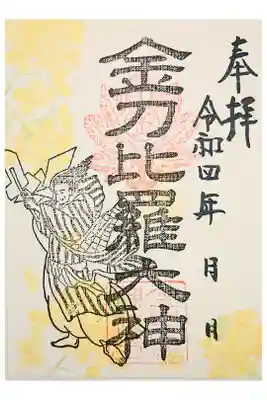 奉拝
令和四年 月 日
金刀比羅大神